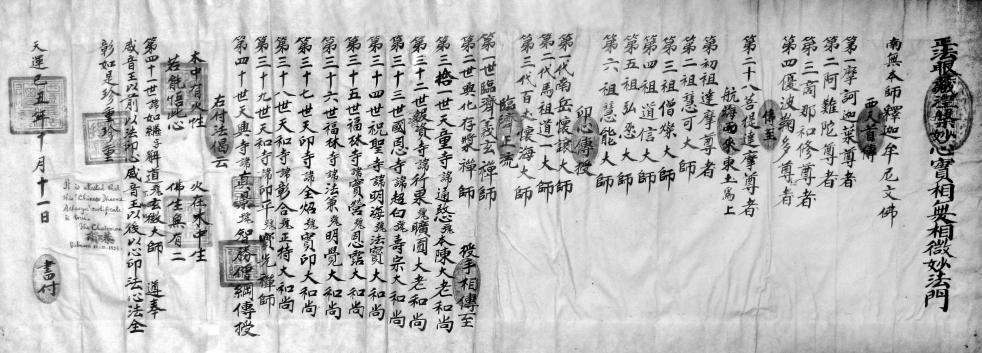 正法眼藏涅槃妙心實相無相微妙法門
南無本師釋迦牟尼文佛
西天首傳
第一摩訶迦葉尊者
第二阿難陀尊者
第三商那和修尊者
第四優波鞠多尊者
傳至
第二十八菩提達摩尊者
航海而來東土為上
第初祖達摩尊者
第二祖慧可大師
第三祖僧燦大師
第四祖道信大師
第五祖弘忍大師
第六祖慧能大師
印心傳授
第一代南岳懷讓大師
第二代馬祖道一大師
第三代百丈懷海大師
臨濟正流
第一世臨濟義玄禪師
第二世興化存獎禪師
授手相傳至
第三拾一世天童寺諱通忞
本陳大老和尚
第三十二世報資寺諱行果
曠圓大老和尚
第三十三世國恩寺諱超白
壽宗大和尚
第三十四世祝聖寺諱明海
法寶大和尚
第三十五世福林寺諱實營
恩霑大和尚
第三十六世福林寺諱法
明覺大和尚
第三十七世天印寺諱全
寶印大和尚
第三十八世天和寺諱彰合
正持大和尚
第三十九世天和寺諱印平
寶光禪師
第四十世天興寺諱真
智勝僧綱傳授
右付法偈云
木中有火性 火在木中生
若能悟此心 佛性無有二
第四十世諱如 字解道 玄徹大師 遵奉
威音王以前以法印心威音王以後以心印法心法全
彰如是珍重珍重
It is attested that
this Chinese
certificate
is true.
The Chairman
天運己丑年十月十一日
書付